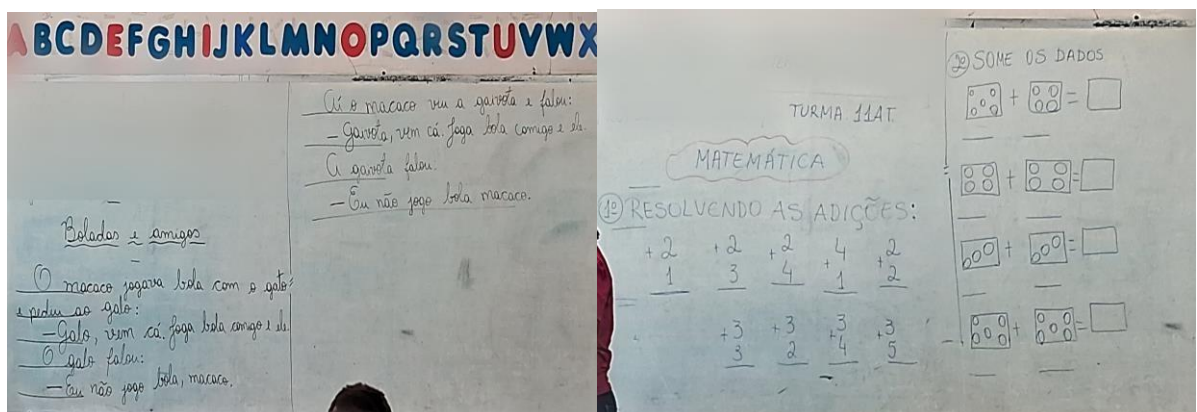 ABCDEFGHIJKLMNOPQRSTUVWX
Boladas e amigos
O macaco jogava bola com o gato
e pediu ao galo:
– Galo, vem cá. Joga bola comigo e ele.
O galo falou:
– Eu não jogo bola, macaco.
Aí o macaco viu a gaivota e falou:
– Gaivota, vem cá. Joga bola comigo e ele.
A gaivota falou:
– Eu não jogo bola macaco.
TURMA 11AT
MATEMÁTICA
1º RESOLVENDO AS ADIÇÕES:
+2 +2 +2 +4 +2
1 3 4 1 2
+3 +3 +3 +3
3 2 4 5
2º SOME OS DADOS
+ =
+ =
+ =
+ =